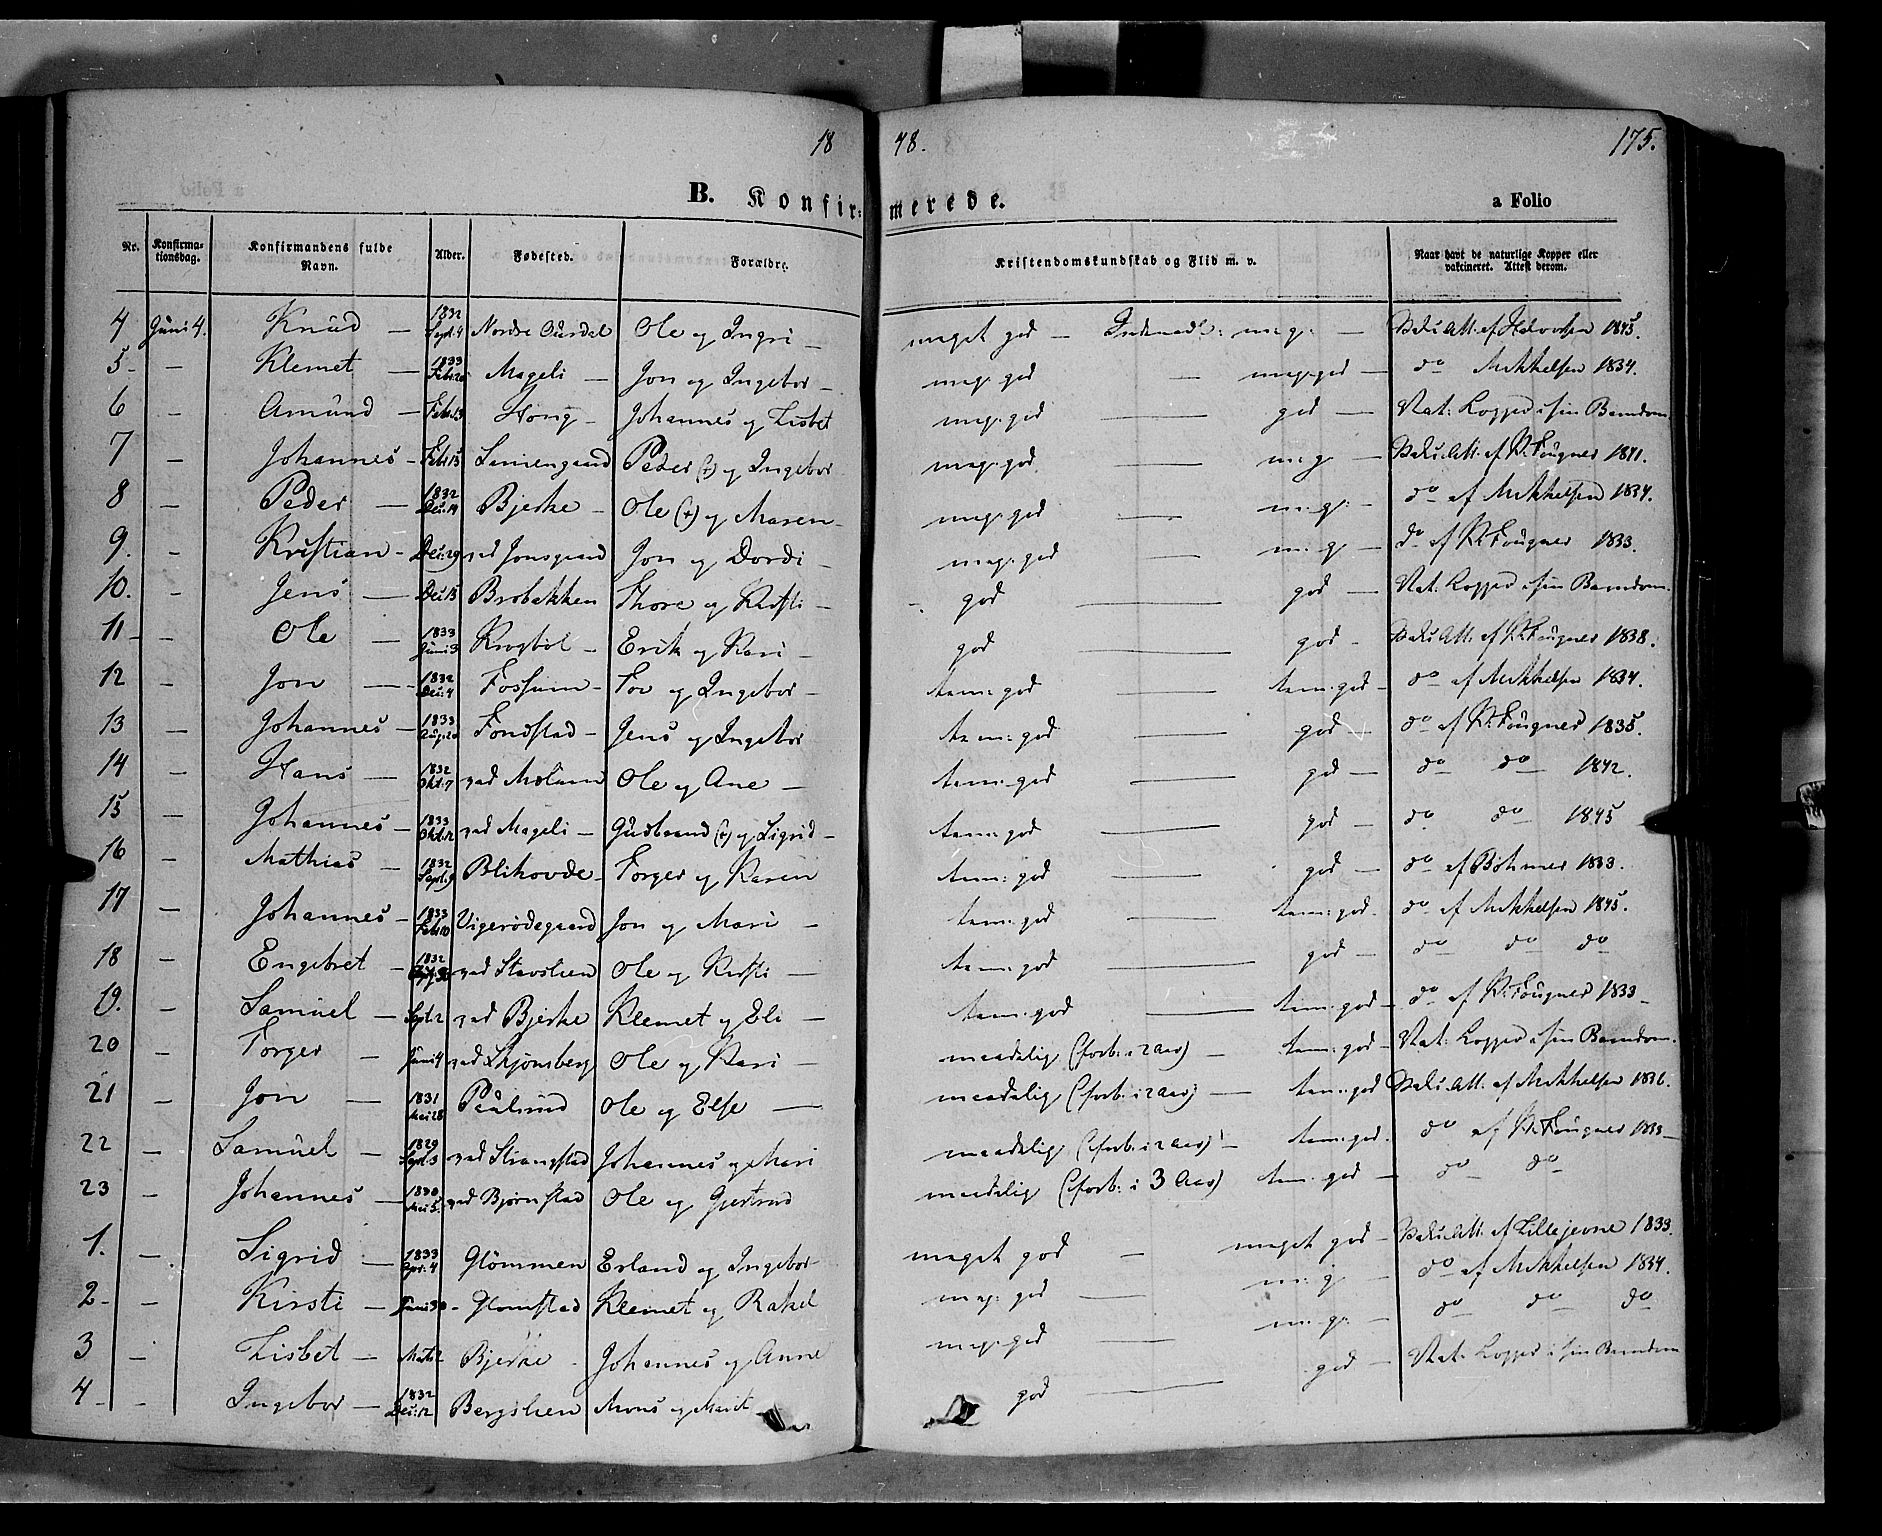 18 48. 175.
B. Konfirmerede. a Folio
Nr. Konfirmationsdag. Konfirmandens fulde Navn. Alder. Fødested. Forældre. Kristendomskundskab og Flid m. v. Naar havt de naturlige Kopper eller vaktineret. Attest derom.
4 Juni 4. Knud — 1832 Sept. 4 Nordre Ole og Ingri — meget god — m: g: — Vaks: Att: af 1845.
5 — Klemet — 1833 Febr. 20 Mageli — Jon og Ingebor — meg: god — meg: god — do Mikkelsen 1834.
6 — Amund — Febr. 13 Hong — Johannes og Lisbet meg: god — god — Nat: Kopper i sin Barndom
7 — Johannes — Febr. 15 Peder (+) og Ingebor meg: god — m: g: — Vaks: Att: af K. Fougner 1841.
8 — Peder — 1832 Dec: 14 Bjerke — Ole (+) og Maren — meg: god — m: g: — do af Mikkelsen 1834.
9. — Kristian — Dec: 29 ved Jonsgaard Jon og Dordi — meg: god — m: g: — do af K. Fougner 1833.
10. — Jens — Dec: 15 Brobakken Thore og Kirsti — god — god — Nat: Kopper i sin Barndom.
11 — Ole — 1833 Juni 3 Krogböl — Erik og Kari — god — god — Vaks: Att: af K. Fougner 1838.
12 — Jon — 1832 Dec: 4 Fossum — Tor og Ingebor — tem: god — tem: god — do af Mikkelsen 1834.
13 — Johannes — 1833 Aug. 20 Fondstad — Jens og Ingebor tem: god — god — do af K. Fougner 1835.
14 — Hans — 1832 Okt: 7 ved Ole og Ane — tem: god — god — do do 1842.
15 — Johannes — 1833 Okt: 12 ved Mageli — Gudbrand (+) og Sigrid — tem: god — god — do do 1845
16 — Mathias — 1832 Sept. 9 Blihovde — Torger og Karen tem: god — god — do af Böhmer 1833.
17 — Johannes — 1833 Febr. 10 Vigerödegaard Jon og Mari — tem: god — tem: god — do af Mikkelsen 1845.
18 — Engebret — 1832 ved Stavslien Ole og Kirsti — tem: god — god — do do do
19. — Samuel — Sept. 2 ved Bjerke Klemet og Eli — tem: god — tem: god — do af K. Fougner 1833 —
20 — Torger — Juni 4 ved Skjönsberg Ole og Kari — maadelig (forb: i 2 Aar) — tem: god — Nat: Kopper i sin Barndom.
21 — Jon — 1831 Mai 28 Paalsrud Ole og Else — maadelig (forb: i 2 Aar) — tem: god Vaks: Att: af Mikkelsen 1836.
22 — Samuel — 1829 Sept. 3 ved Strangstad Johannes og Mari maadelig (forb: i 2 Aar) — tem: god. do af K. Fougner 1833 —
23 — Johannes — 1830 Mai 5 ved Björnstad Ole og Gjertrud maadelig (forb: i 3 Aar) tem: god — do do
1. — Sigrid — 1833 Apr: 4 Glömmen Erland og Ingebor meget god — meget god — Vaks: Att: af Lillejevne 1833.
2 — — Kirsti — Juni 30 — Glomstad Klemet og Rakel meg: god — m: g: — do af Mikkelsen 1834.
3 — Lisbet — Mai Bjerke — Johannes og Anne meg: god — m: g: — do do do
4 — — Ingebor — 1832 Dec: 12 Bergslien Mons og Marit god — god — Nat: Kopper i sin Barndom